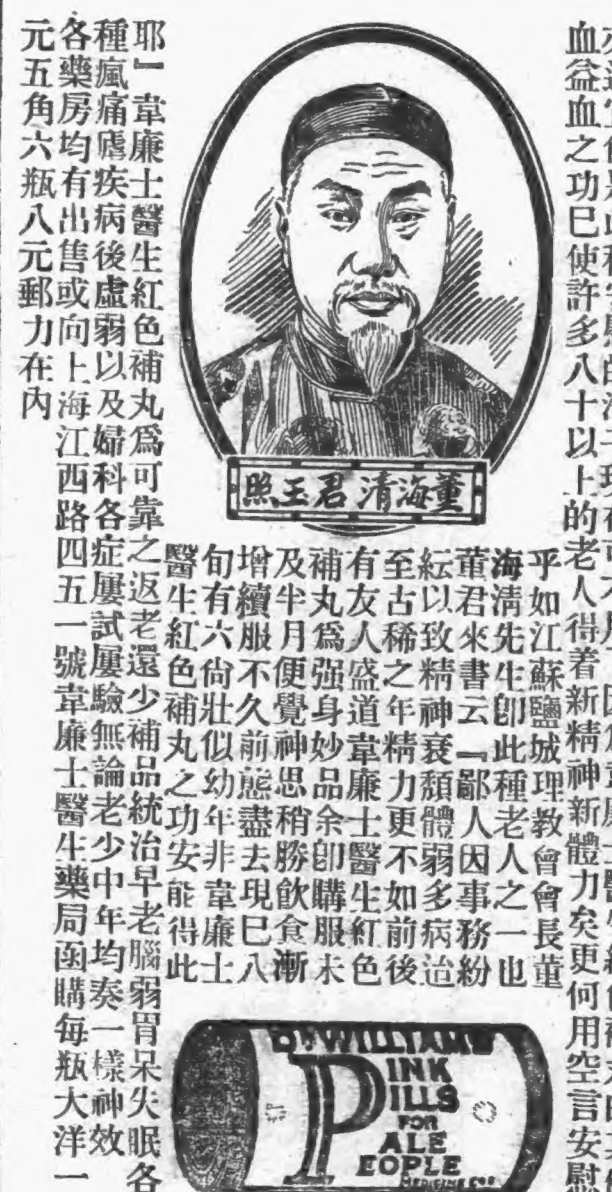 血益血之功巳使許多八十以上的老人得着新精神新體力矣更何用空言安慰
乎如江蘇鹽城理教會會長董
海清先生卽此種老人之一也
董君來書云『鄙人因事務紛
紜以致精神衰頹體弱多病迨
至古稀之年精力更不如前後
有友人盛道韋廉士醫生紅色
補丸爲强身妙品余卽購服未
及半月便覺神思稍勝飲食漸
增續服不久前態盡去現巳八
旬有六尙壯似幼年非韋廉士
醫生紅色補丸之功安能得此
耶』韋廉士醫生紅色補丸爲可靠之返老還少補品統治早老腦弱胃呆失眠各
種瘋痛瘧疾病後虛弱以及婦科各症屢試屢驗無論老少中年均奏一樣神效
各藥房均有出售或向上海江西路四五一號韋廉士醫生藥局函購每瓶大洋一
元五角六瓶八元郵力在內
董海清君玉照
DR WILLIAMS
PINK
PILLS
FOR
PALE
PEOPLE